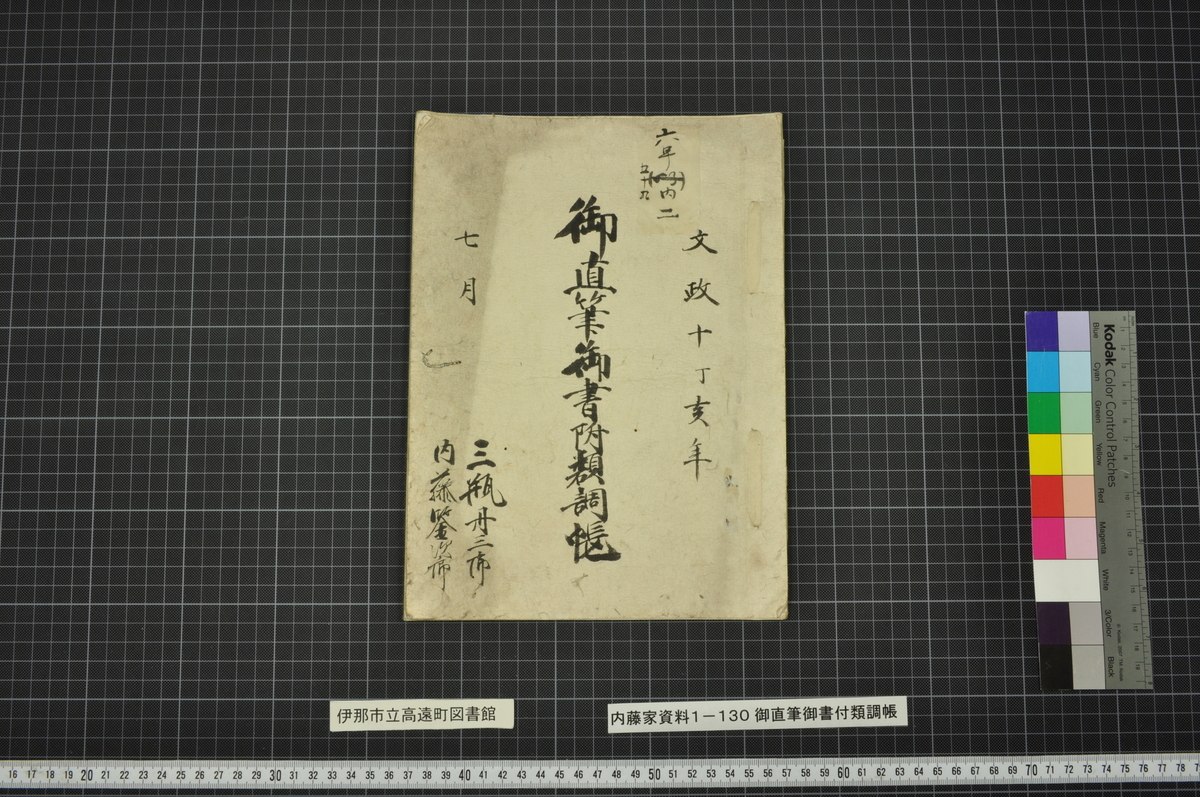 六早
内二
五十九
文政十丁亥年
御直筆御書附類調帳
七月
三瓶丹三
内藤
伊那市立高遠町図書館
内藤家資料1-130 御直筆御書付類調帳
Kodak Color Control Patches
Blue
Cyan
Green
Yellow
Red
Magenta
White
3/Color
Black
16 17 18 19 20 21 22 23 24 25 26 27 28 29 30 31 32 33 34 35 36 37 38 39 40 41 42 43 44 45 46 47 48 49 50 51 52 53 54 55 56 57 58 59 60 61 62 63 64 65 66 67 68 69 70 71 72 73 74 75 76 77 78